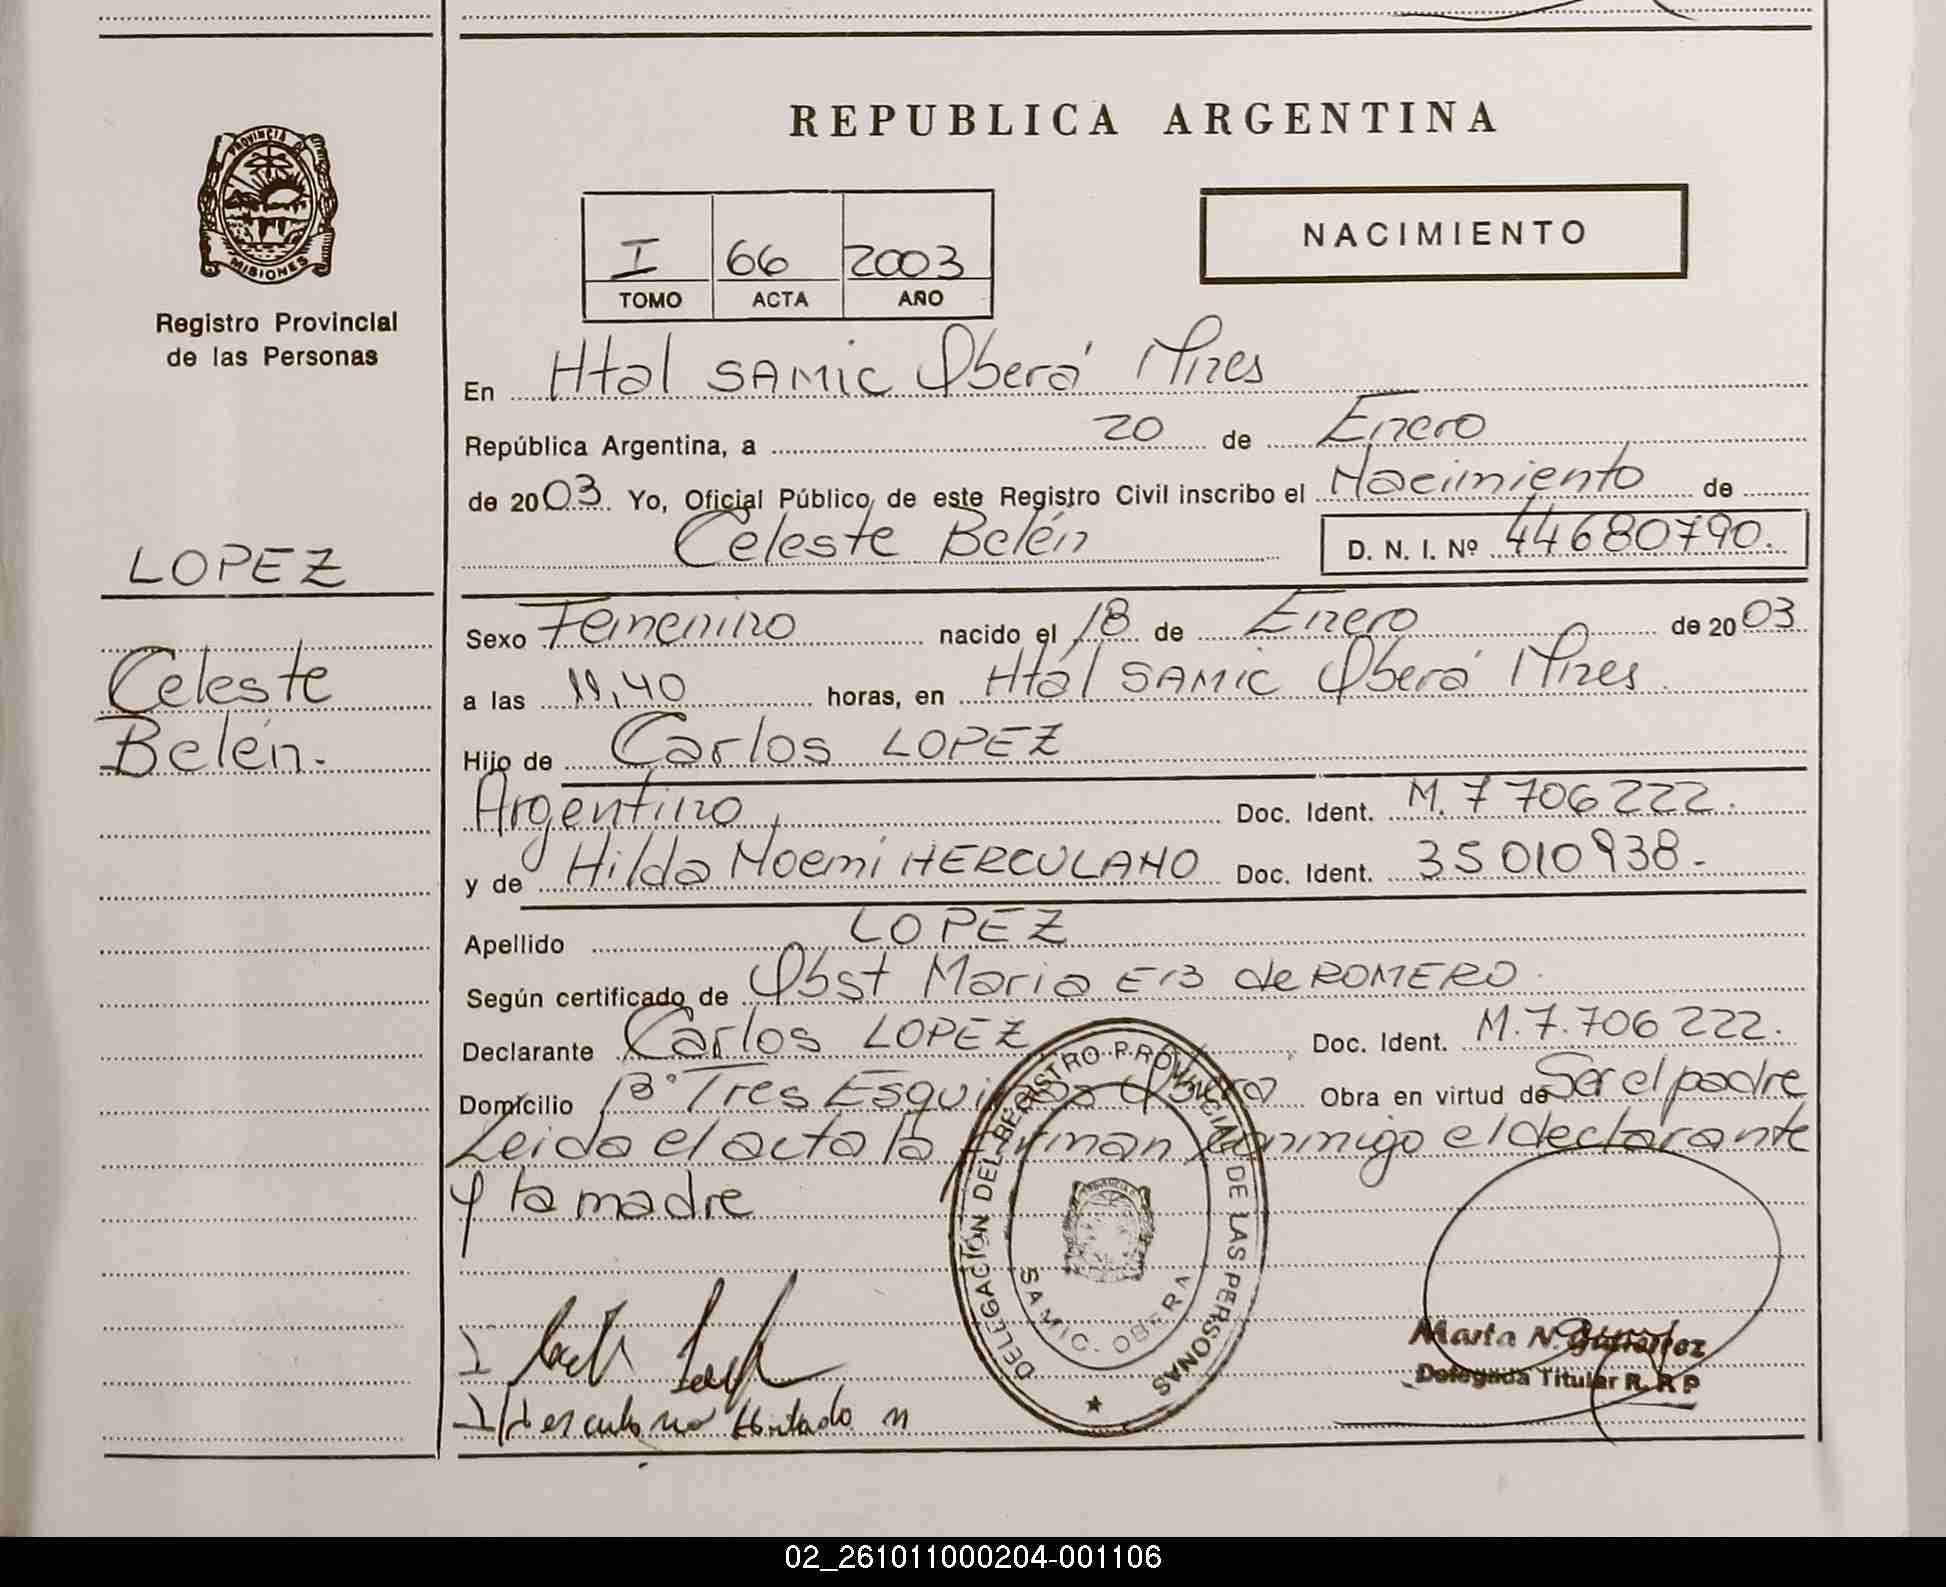 REPUBLICA ARGENTINA
PROVINCIA DE
MISIONES
Registro Provincial
de las Personas
I 66 2003
TOMO ACTA AÑO
NACIMIENTO
En Htal SAMIC Oberá Mnes
República Argentina, a 20 de Enero
de 2003. Yo, Oficial Público, de este Registro Civil inscribo el Nacimiento de
Celeste Belén D. N. I. Nº 44680790.
LOPEZ
Celeste
Belén.
Sexo Femenino nacido el 18 de Enero de 2003
a las 11,40 horas, en Htal SAMIC Oberá Mnes.
Hijo de Carlos LOPEZ
Argentino, Doc. Ident. M. 7 706 222.
y de Hilda Noemi HERCULANO Doc. Ident. 35 010 938.-
Apellido LOPEZ
Según certificado de Obst Maria de ROMERO.
Declarante Carlos LOPEZ Doc. Ident. M. 7.706 222.
Domicilio Bº Tres Esquinas Oberá Obra en virtud de Ser el padre
Leida el acta la firman conmigo el declarante
y la madre
DELEGACIÓN DEL REGISTRO PROVINCIAL DE LAS PERSONAS
SAMIC. OBERA
Marta N.
Delegada Titular R. R P
02_261011000204-001106